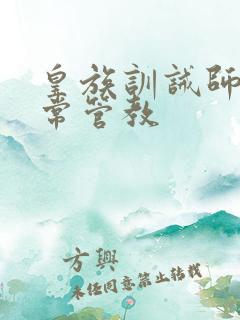 皇族訓誡師
常管教
方興
未經同意禁止轉載